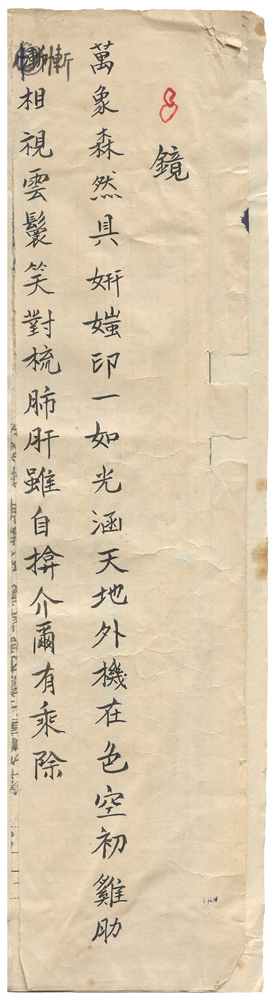 8
鏡
萬象森然具妍媸印一如光涵天地外機在色空初雞肋
相視雲鬟笑對梳肺肝雖自揜介爾有乘除